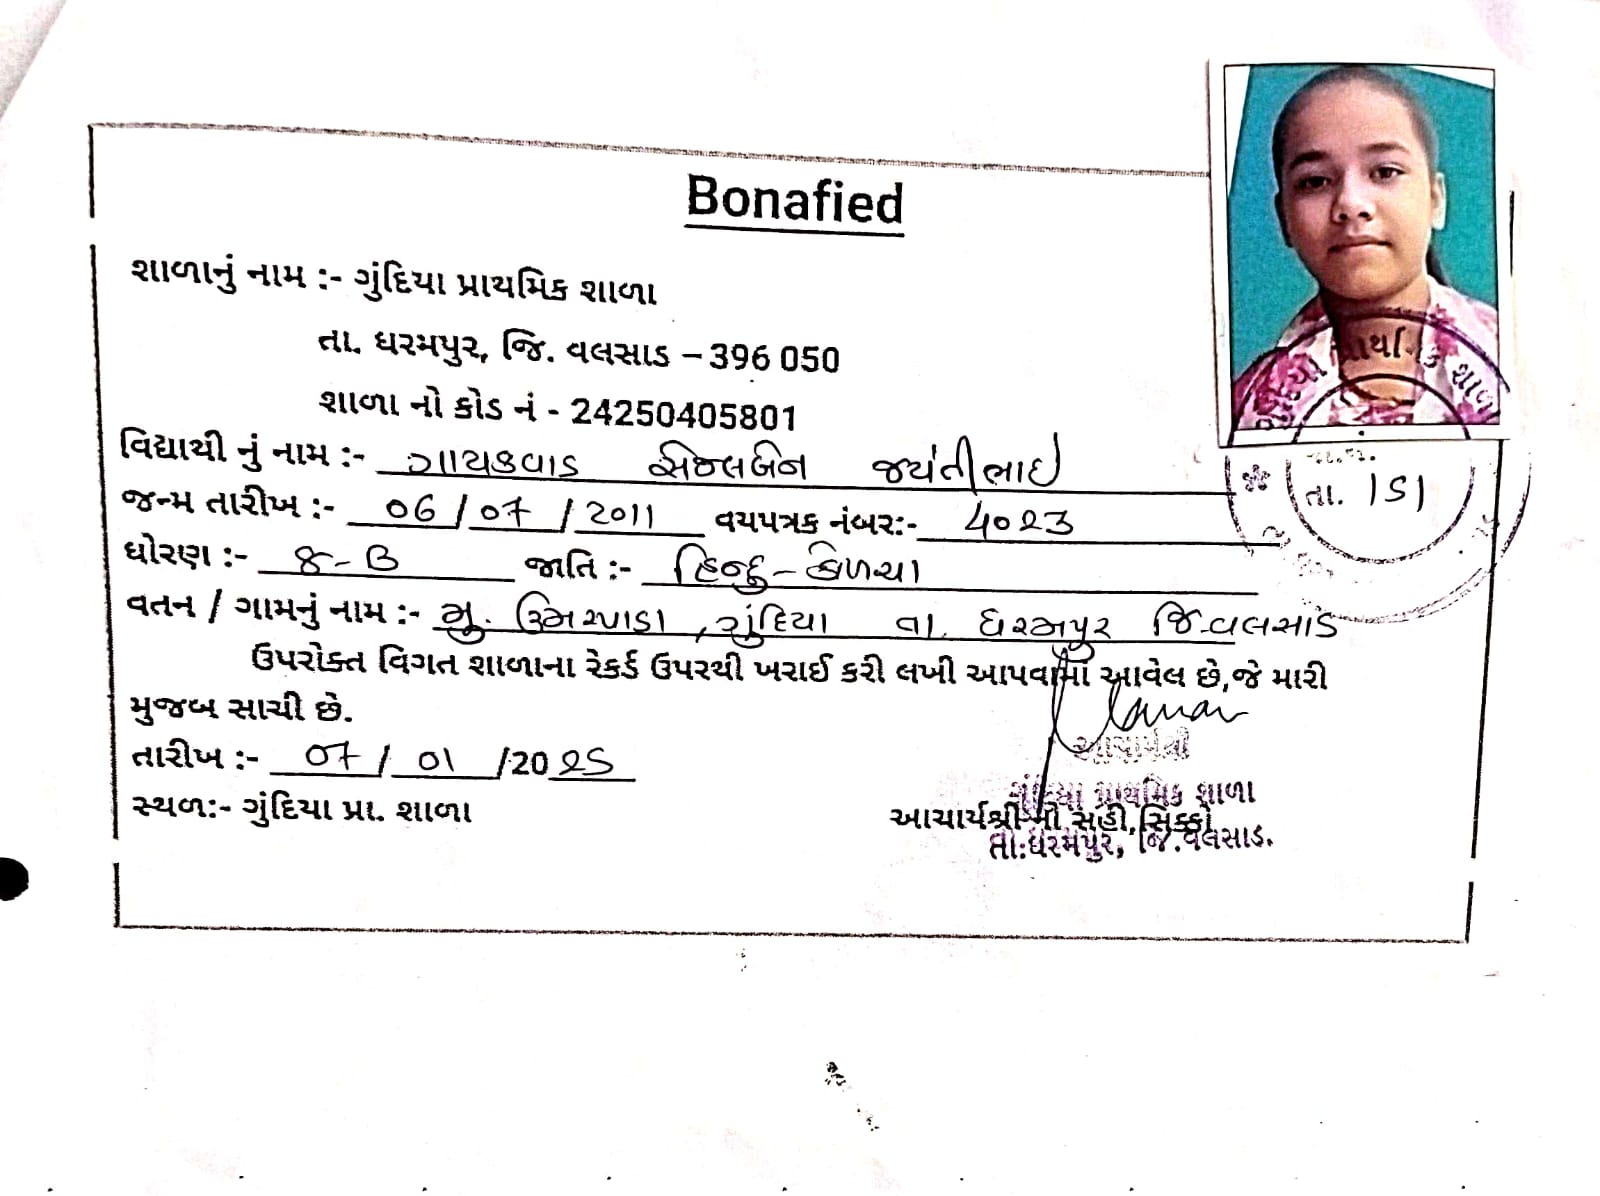 Bonafied
શાળાનું નામ :- ગુંદિયા પ્રાથમિક શાળા
તા. ધરમપુર, જિ. વલસાડ – 396 050
શાળા નો કોડ નં - 24250405801
વિદ્યાથી નું નામ :- ગાયકવાડ સેજલબેન જયંતીભાઈ
જન્મ તારીખ :- 06/07/2011 વયપત્રક નંબર:- 4023
ધોરણ :- 8-B જાતિ :- હિન્દુ-કોળચા
વતન / ગામનું નામ :- મુ. ઉમરપાડા, ગુંદિયા તા. ધરમપુર જિ-વલસાડ
ઉપરોક્ત વિગત શાળાના રેકર્ડ ઉપરથી ખરાઈ કરી લખી આપવામાં આવેલ છે,જે મારી
મુજબ સાચી છે.
તારીખ :- 07/01/2025
સ્થળ:- ગુંદિયા પ્રા. શાળા
આચાર્યશ્રી
ગુંદિયા પ્રાથમિક શાળા
આચાર્યશ્રી ની સહી,સિક્કો
તા:ધરમપુર, જિ.વલસાડ.